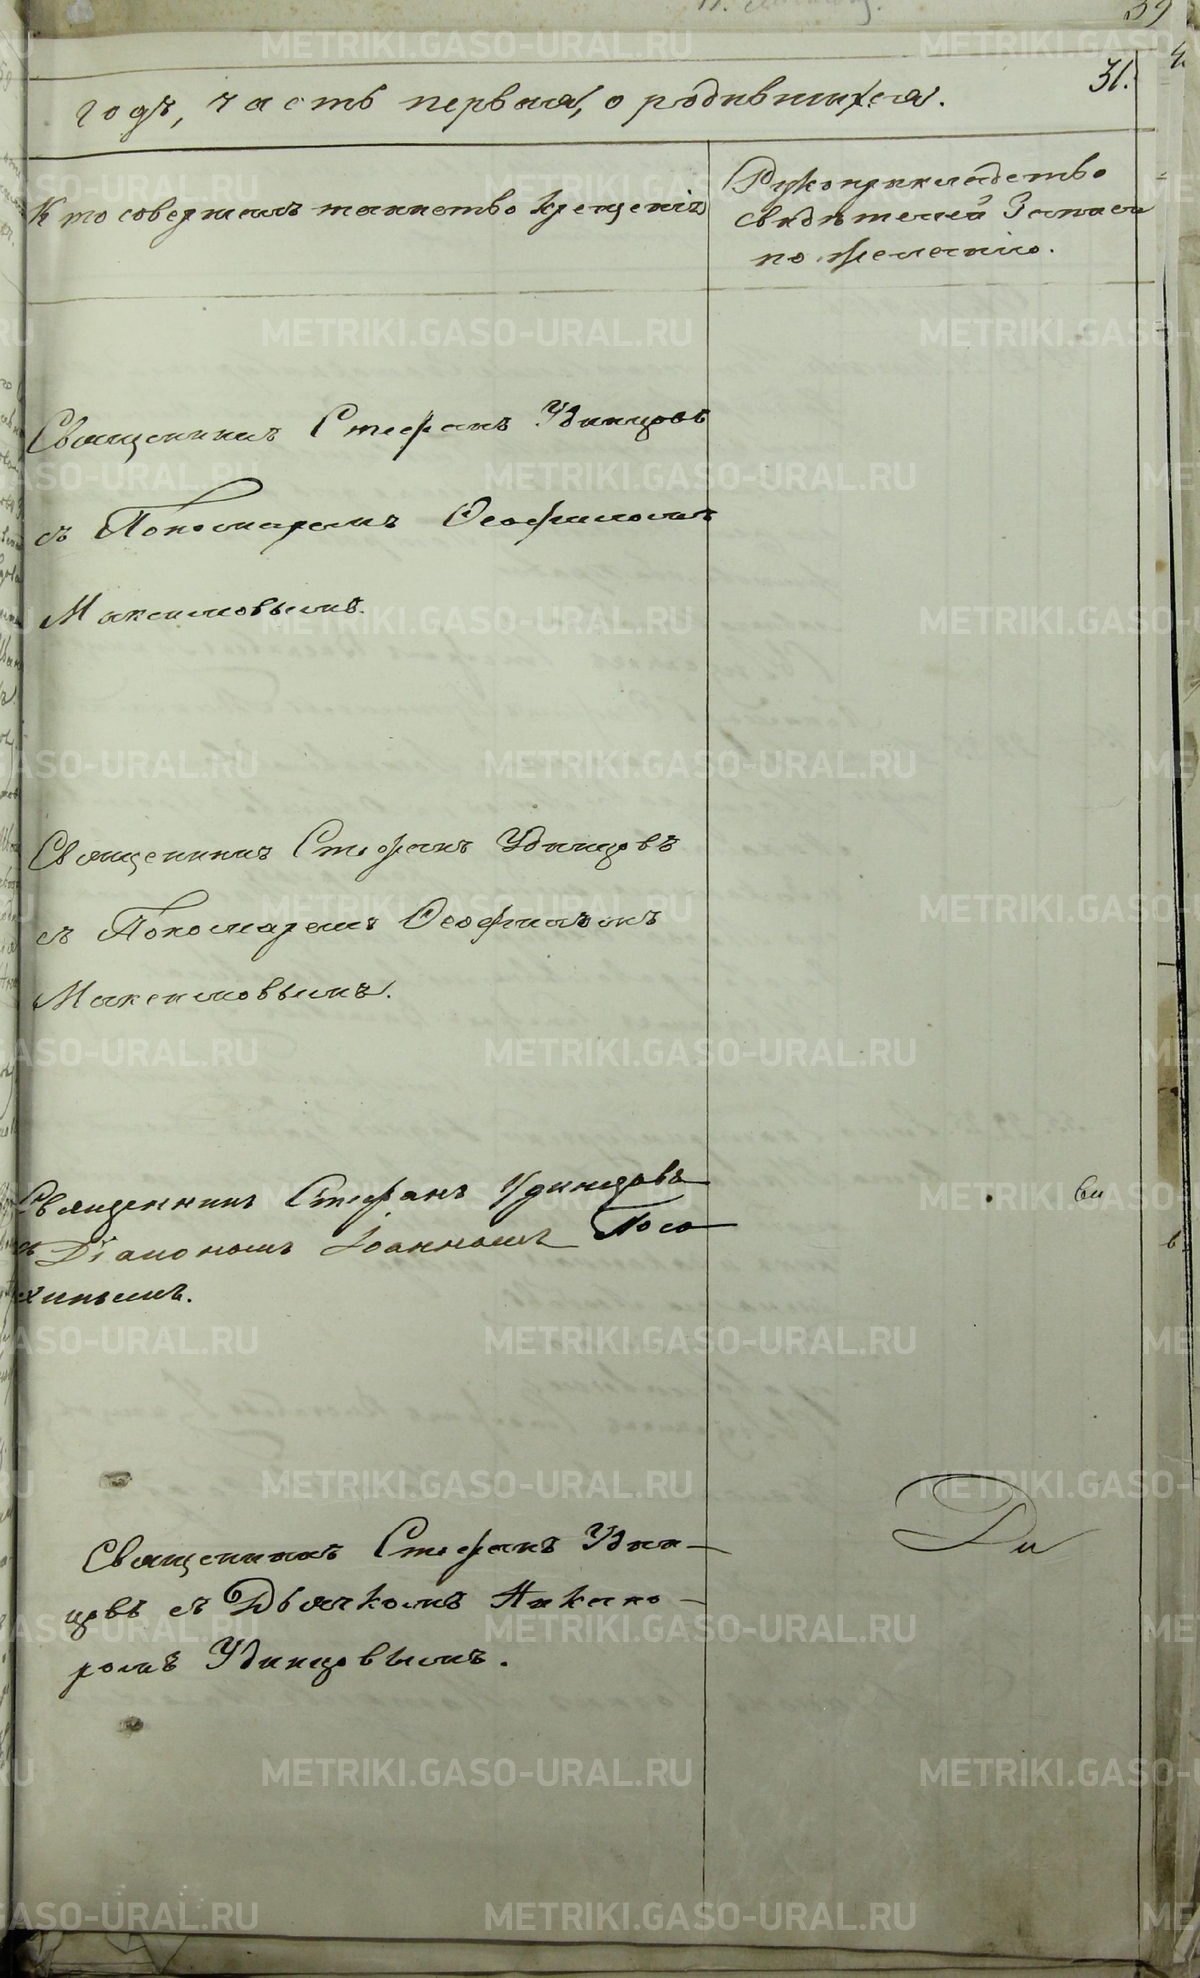 39
31.
годъ, часть первая, о родившихся.
Кто совершалъ таинство крещенія
Рукоприкладство
свидѣтелей записи
по желанію.
Священникъ Стефанъ Удинцовъ
съ Пономаремъ Ѳеофиломъ
Максимовымъ.
Священникъ Стефанъ Удинцовъ
съ Пономаремъ Ѳеофиломъ
Максимовымъ.
Священникъ Стефанъ Удинцовъ
съ Діакономъ Іоанномъ
Священникъ Стефанъ Удин-
цовъ съ Дьячкомъ Никано-
ромъ Удинцовымъ.
METRIKI.GASO-URAL.RU